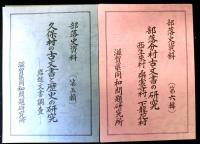 部落史資料
(第五輯)
久保村の古文書と歴史の研究
文書調査
滋賀県同和問題研究所
部落史資料
(第六輯)
部落分村古文書の研究
滋賀県同和問題研究所